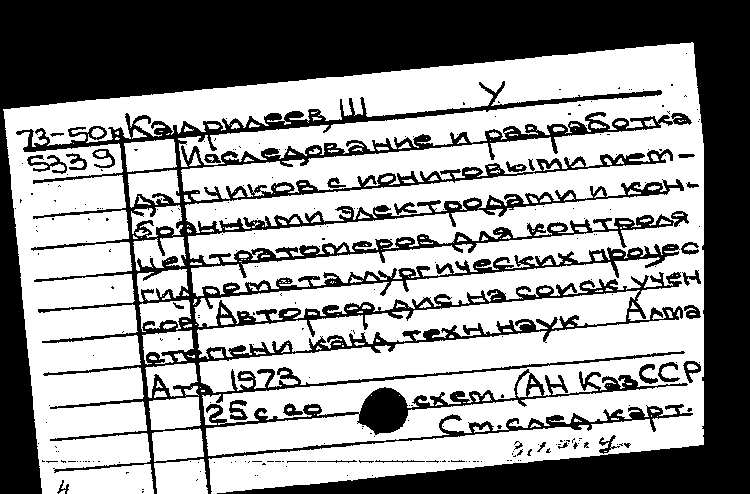 У
73-50
Кадрилеев, Ш
5339
Исследование и разработка
датчиков с ионитовыми мем-
бранными электродами и кон-
центратомеров для контроля
гидрометаллургических процес
сов. Автореф. дис. на соиск. учен
степени канд. техн. наук. Алма
Ата, 1973.
25 с. со схем. (АН КазССР.
См. след. карт.
4